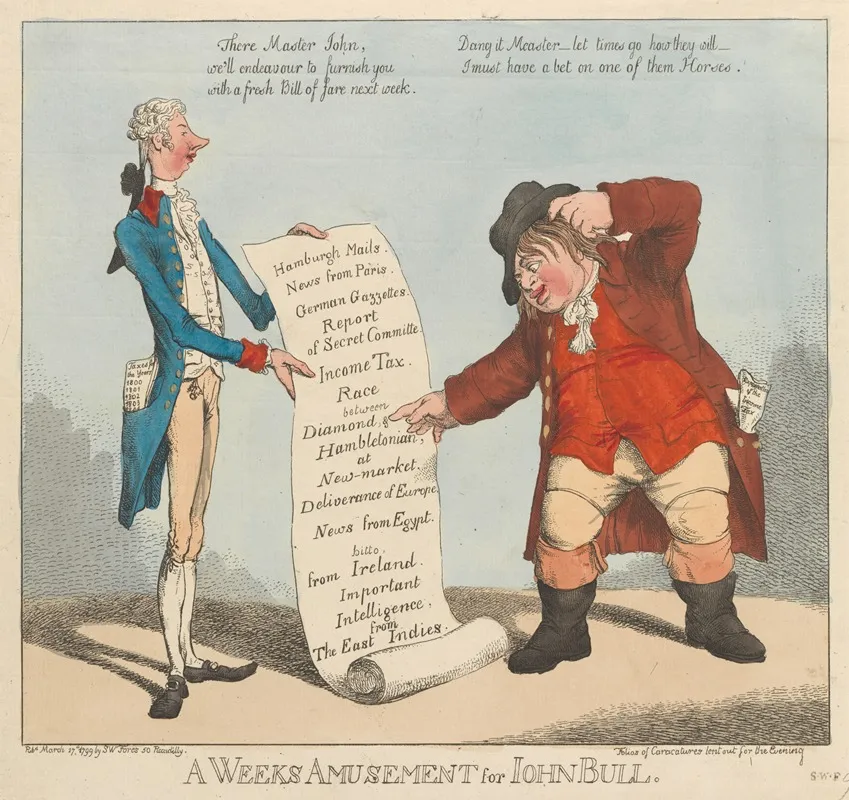 There Master John,
we'll endeavour to furnish you
with a fresh Bill of fare next week.
Dang it Measter_ let times go how they will_
I must have a bet on one of them Horses.
Hamburgh Mails.
News from Paris.
German Gazzettes.
Report
of Secret Committe.
Income Tax.
Race
between
Diamond, &
Hambletonian,
at
New-market.
Deliverance of Europe.
News from Egypt.
Ditto,
from Ireland.
Important
Intelligence,
from
The East Indies.
Taxes for
the Years
1800
1801
1802
1803
of the
Income
Tax
Pubd. March 17th 1799 by S W Fores 50 Piccadilly.
Folios of Caracatures lent out for the Evening
A WEEKS AMUSEMENT for IOHN BULL.
S·W·F